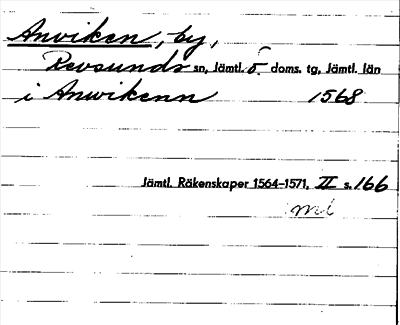 Anviken, by,
Revsunds sn, Jämtl. ö. doms. tg, Jämtl. län
i Anwikenn 1568
Jämtl. Räkenskaper 1564–1571, II s. 166